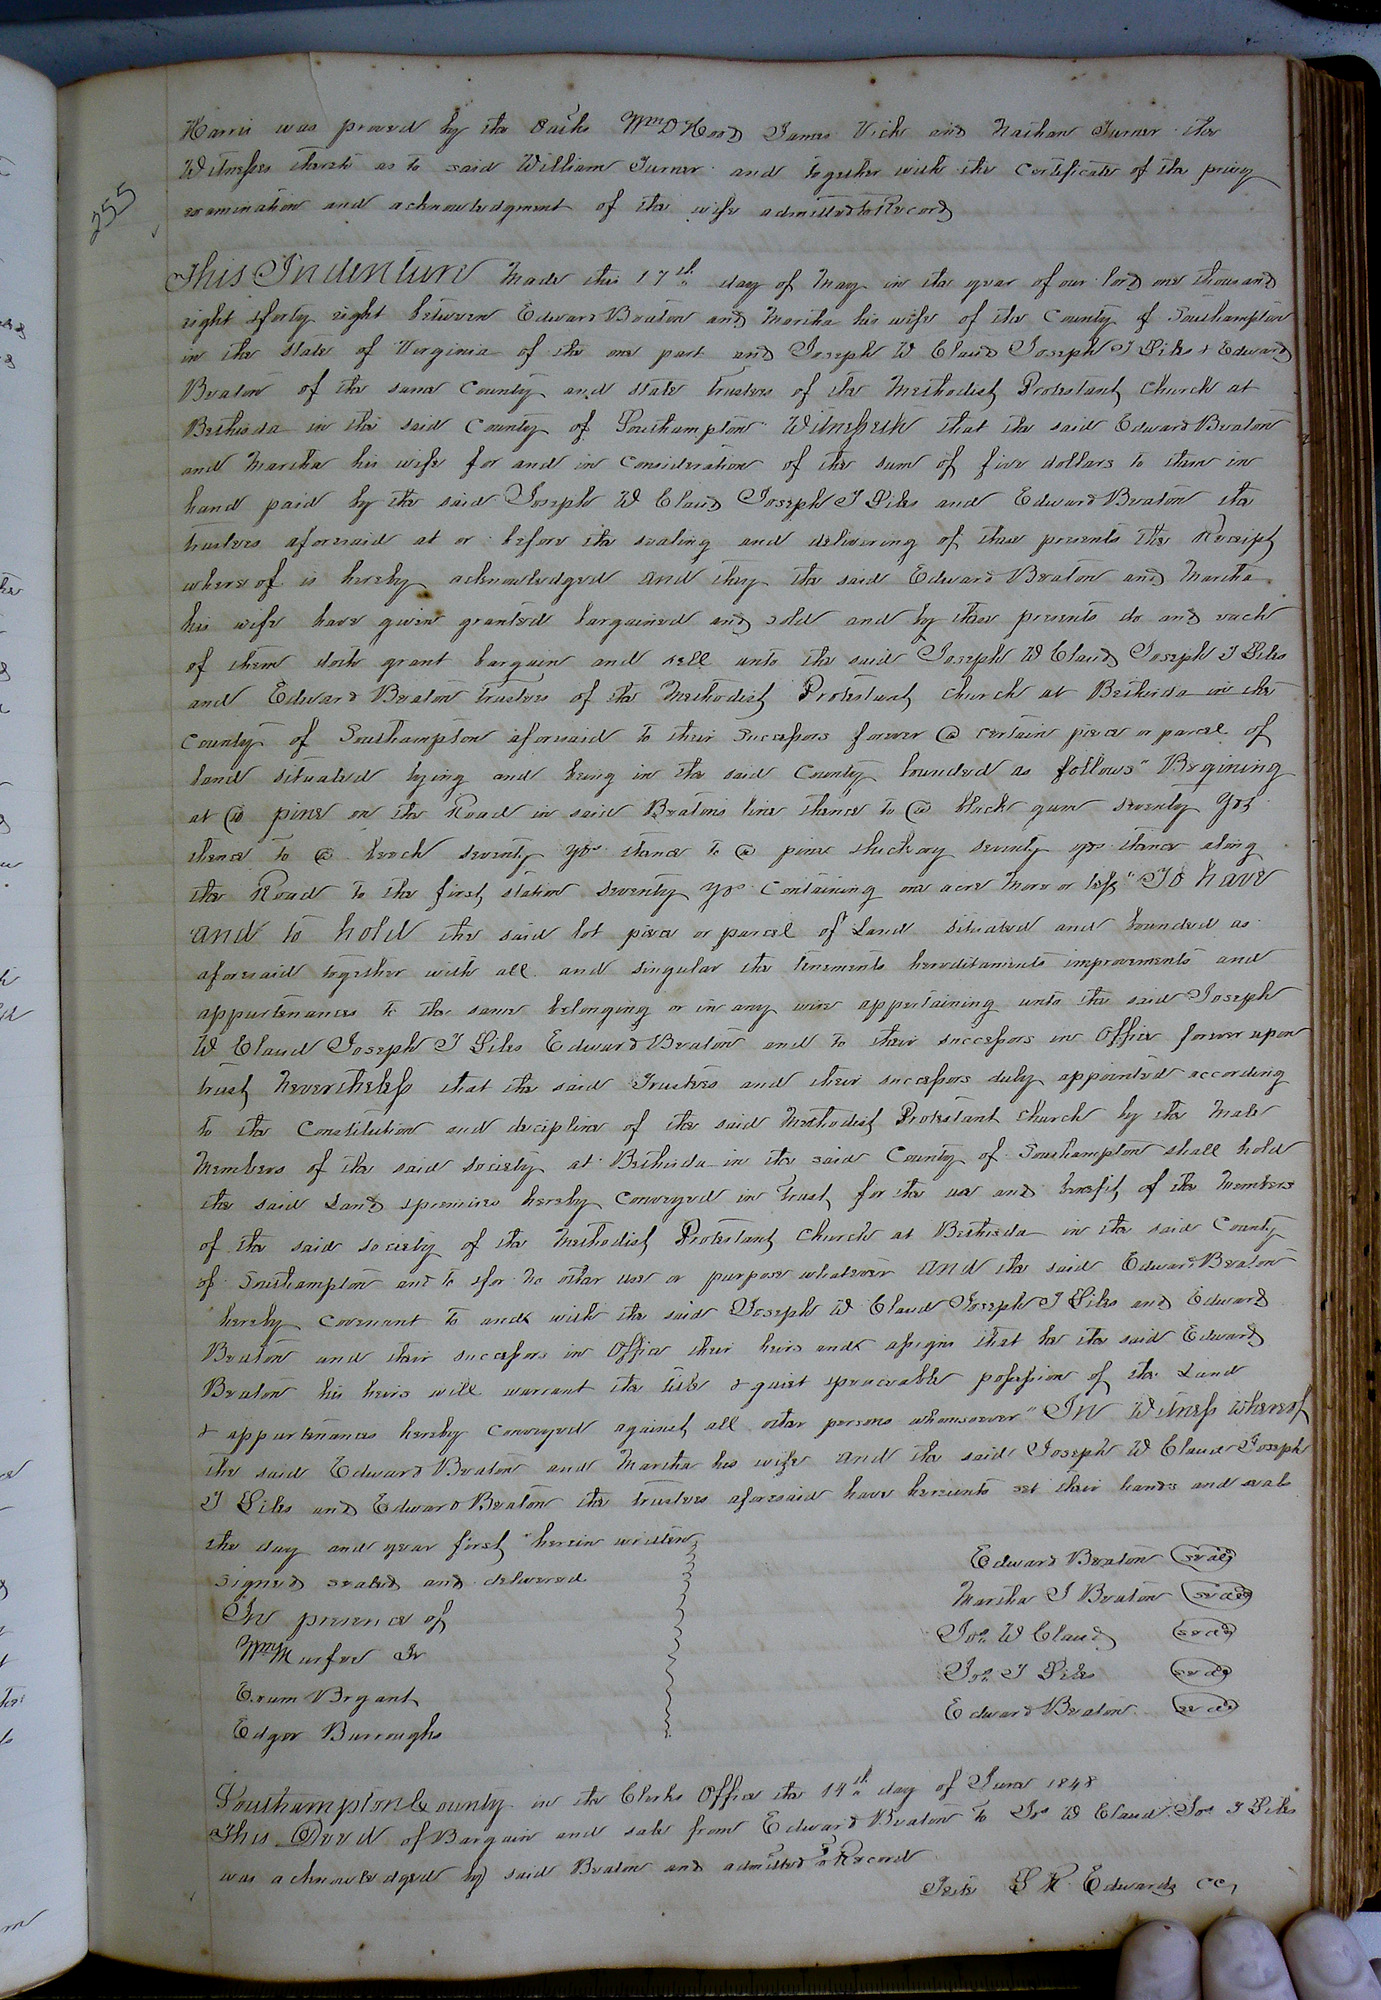 Harris was proved by the Oaths Wm D Hood James Vick and Nathan Turner the
Witnesses thereto as to said William Turner and together with the Certificate of the privy
examination and acknowledgment of the wife admitted to Record
255
This Indenture Made this 17th day of May in the year of our lord one thousand
eight & forty eight between Edward Beaton and Martha his wife of the County of Southampton
in the State of Virginia of the one part and Joseph W Claud Joseph J Liles & Edward
Beaton of the same County and state trustees of the Methodist Protestant Church at
Bethesda in the said County of Southampton Witnesseth that the said Edward Beaton
and Martha his wife for and in Consideration of the sum of five dollars to them in
hand paid by the said Joseph W Claud Joseph J Liles and Edward Beaton the
trustees aforesaid at or before the sealing and delivering of these presents the Receipt
where of is hereby acknowledged and they the said Edward Beaton and Martha
his wife have given granted bargained and sold and by these presents do and each
of them doth grant bargain and sell unto the said Joseph W Claud Joseph J Liles
and Edward Beaton trustees of the Methodist Protestant Church at Bethesda in the
County of Southampton aforesaid to their Successors forever @ certain piece or parcel of
land situated lying and being in the said County bounded as follows" Begining
at @ pine on the Road in said Beatons line thence to @ black gum seventy yds
thence to @ beech seventy yds thence to @ pine & hickory seventy yds thence along
the Road to the first station seventy yds Containing one acre more or less" To have
and to hold the said lot piece or parcel of Land situated and bounded as
aforesaid together with all and singular the tenements hereditaments improvements and
appurtenances to the same belonging or in any wise appertaining unto the said Joseph
W Claud Joseph J Liles Edward Beaton and to their successors in Office forever upon
trust Nevertheless that the said Trustees and their successors duly appointed according
to the Constitution and decipline of the said Methodist Protestant Church by the Male
Members of the said Society at Bethesda in the said County of Southampton shall hold
the said Land & premises hereby Conveyed in trust for the use and benefit of the Members
of the said society of the Methodist Protestant Church at Bethesda in the said County
of Southampton and to & for no other use or purpose whatever And the said Edward Beaton
hereby Covenant to and with the said Joseph W Claud Joseph J Liles and Edward
Beaton and their successors in Office their heirs and assigns that he the said Edward
Beaton his heirs will warrant the title & quiet & peaceable possession of the Land
& appurtenances hereby Conveyed against all other persons whomsoever" In Witness Whereof
the said Edward Beaton and Martha his wife And the said Joseph W Claud Joseph
J Liles and Edward Beaton the trustees aforesaid have hereunto set their hands and seals
the day and year first herein written
signed sealed and delivered
In presence of
Wm Murfee Jr
Exum Bryant
Edgar Burroughs
Edward Beaton seal
Martha J Beaton seal
Jos. W Claud seal
Jos. J Liles seal
Edward Beaton seal
Southampton County in the Clerks Office the 14th day of June 1848
This Deed of Bargain and sale from Edward Beaton to Jos W Claud Jos J Liles
was acknowledged by said Beaton and admitted to Record
Teste L R Edwards CC